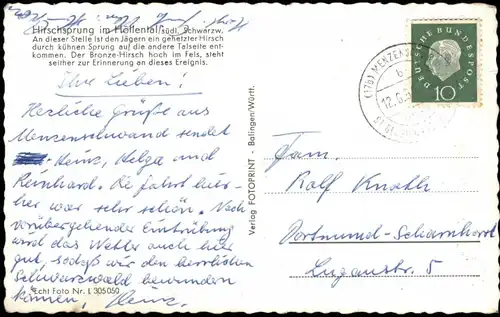 Hirschsprung im Höllental/südl. Schwarzw.
An dieser Stelle ist den Jägern ein gehetzter Hirsch
durch kühnen Sprung auf die andere Talseite ent-
kommen. Der Bronze-Hirsch hoch im Fels, steht
seither zur Erinnerung an dieses Ereignis.
Ihr Lieben!
Herzliche Grüße aus
Menzenschwand sendet
Heinz, Helga und
Reinhard. Die Fahrt hier-
her war sehr schön. Nach
vorübergehender Eintrübung
wird das Wetter auch hier
gut, sodaß wir den herrlichen
Schwarzwald bewundern
können. Heinz.
Echt Foto Nr. L 305050
Verlag FOTOPRINT - Balingen/Württ.
DEUTSCHE BUNDESPOST
10
(17b) MENZEN
b
12.8.
Fam.
Rolf Knoth
Dortmund-Scharnhorst
Luganustr. 5